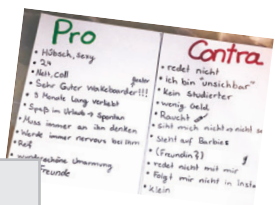 Pro
• Hübsch, sexy
• 24
• Nett, cool
• Sehr Guter Wakeboarder!!!
• 3 Monate lang verliebt
• Spaß im Urlaub → Spanien
• Muss immer an ihn denken
• Werde immer nervös bei ihm
• Reif
wunderschöne Umarmung
Freunde
Contra
• redet nicht
• Ich bin "unsichtbar"
• Kein studierter
• wenig Geld
• Raucht
• sieht mich nicht
• Steht auf Barbies
• (Freundin?)
• redet nicht mit mir
• Folgt mir nicht in Insta
• klein